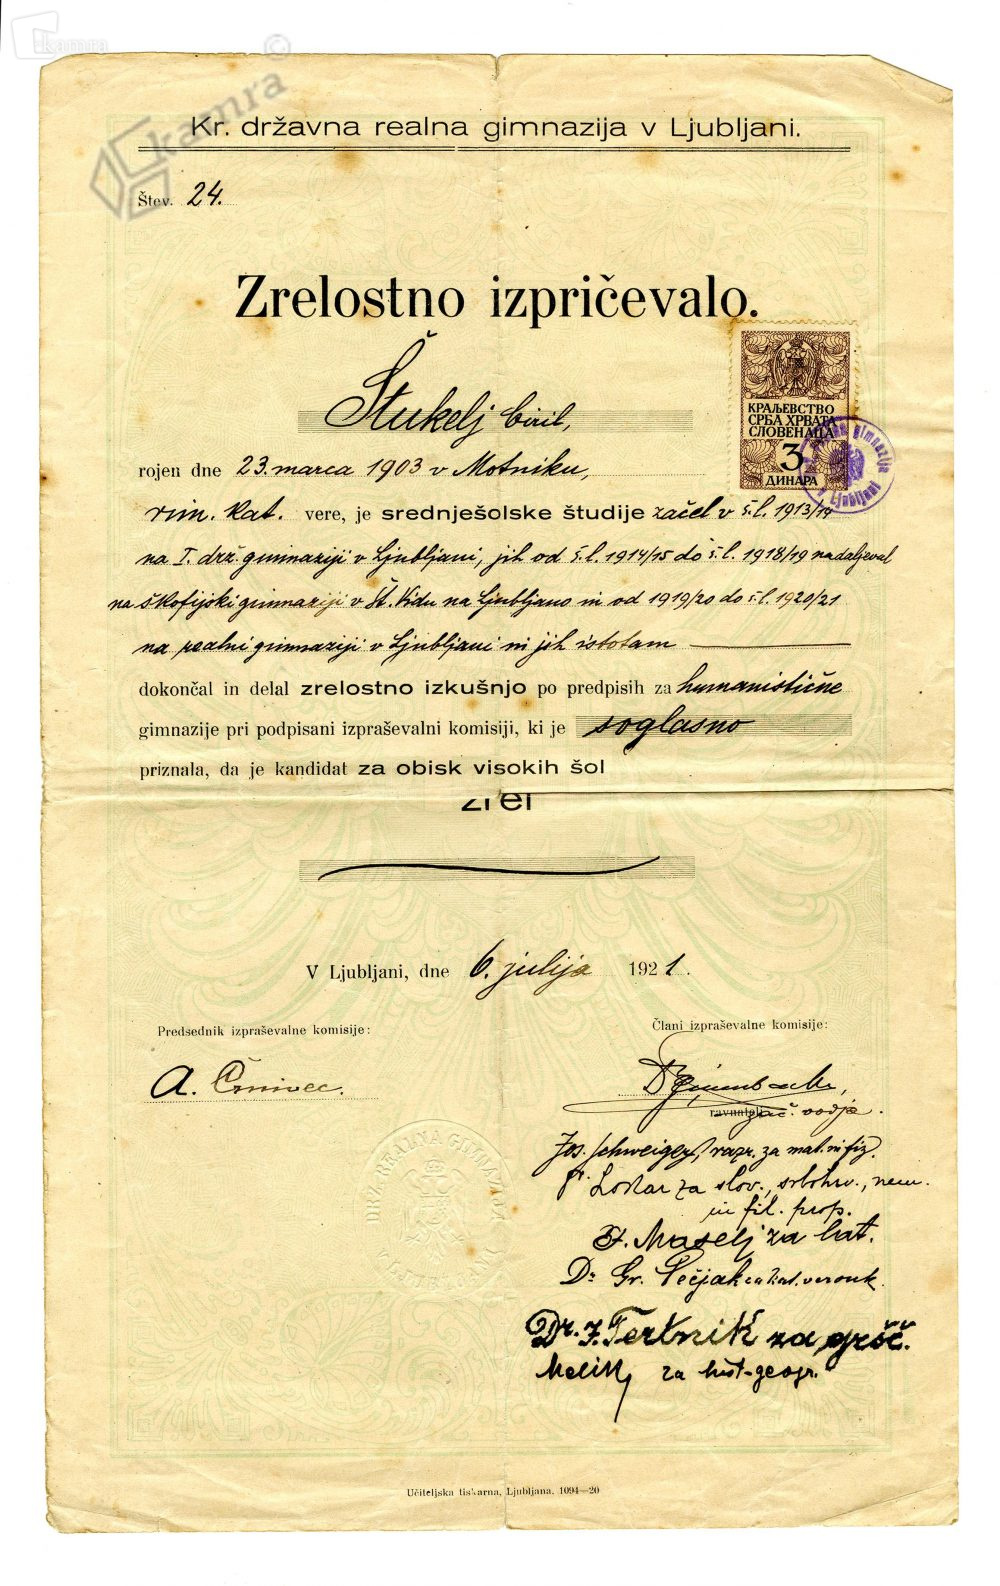 kamra
kamra ©
Kr. državna realna gimnazija v Ljubljani.
Štev. 24.
Zrelostno izpričevalo.
Štukelj Ciril,
КРАЉЕВСТВО
СРБА ХРВАТА
СЛОВЕНАЦА
3
ДИНАРА
gimnazija
v Ljubljani
rojen dne 23. marca 1903 v Motniku,
rim. kat. vere, je srednješolske študije začel v š.l. 1913/14
na I. drž. gimnaziji v Ljubljani, jih od š.l. 1914/15 do š.l. 1918/19 nadaljeval
na škofijski gimnaziji v Št. Vidu na Ljubljano in od 1919/20 do š.l. 1920/21
na realni gimnaziji v Ljubljani in jih istotam
dokončal in delal zrelostno izkušnjo po predpisih za humanistične
gimnazije pri podpisani izpraševalni komisiji, ki je soglasno
priznala, da je kandidat za obisk visokih šol
zrel
V Ljubljani, dne 6. julija 1921.
Predsednik izpraševalne komisije:
Člani izpraševalne komisije:
A. Črnivec.
Dr
ravnatelj. zač. vodja.
Jos. Schweiger, razr. za mat. in fiz.
Lokar za slov., srbohrv., nem.
in fil. prop.
J. Maselj za lat.
Dr Gr. Pečjak za kat. veronk.
Dr. J. Pertnik za gršč.
Melik za hist-geogr.
DRŽ. REALNA GIMNAZIJA
V LJUBLJANI
Učiteljska tiskarna, Ljubljana. 1094—20